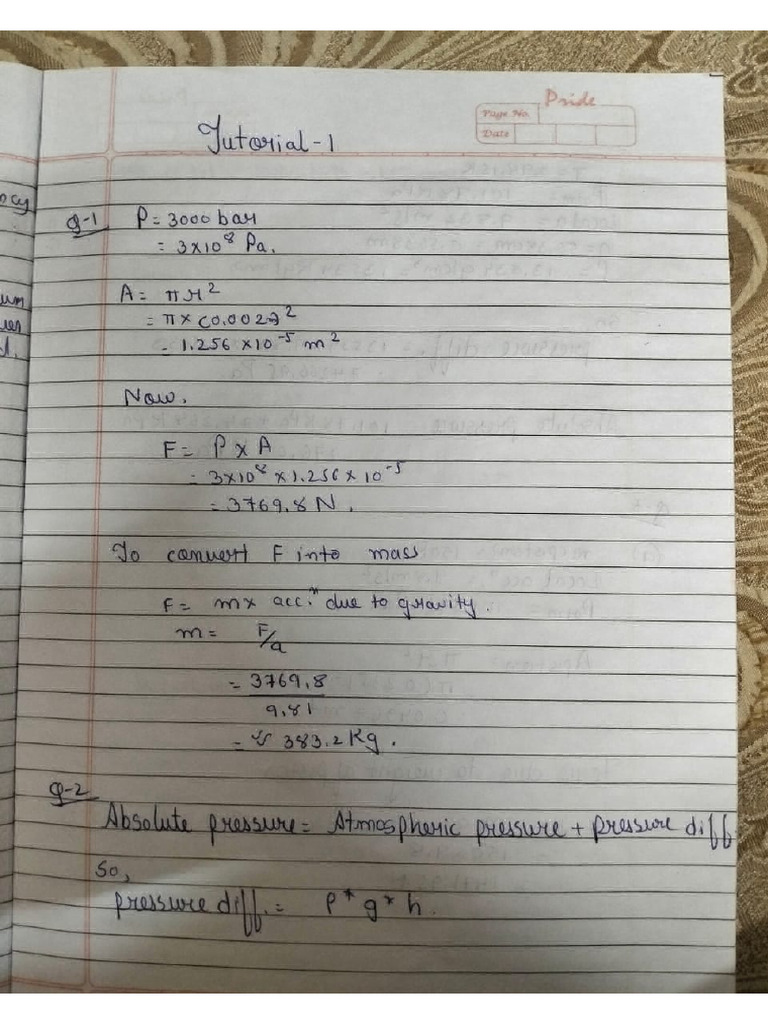 Pride
Page No.
Date
Tutorial-1
ocy
Q-1 P = 3000 bar
= 3×10⁸ Pa.
A = πr²
= π × (0.002)²
= 1.256 × 10⁻⁵ m²
Now,
F = P × A
= 3×10⁸ × 1.256 × 10⁻⁵
= 3769.8 N.
To convert F into mass
F = m× acc.ⁿ due to gravity.
m = F/a
= 3769.8
9.81
= ≈ 383.2 Kg.
Q-2
Absolute pressure = Atmospheric pressure + pressure diff
So,
pressure diff. = ρ * g * h.